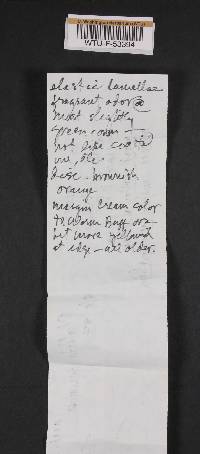 WTU-F-53394
elastic lamellae
fragrant odor
most slightly
green corn
not
base brownish
orange
margin cream color
to warm Buff or a
bit more yellowish
at edge - all older.